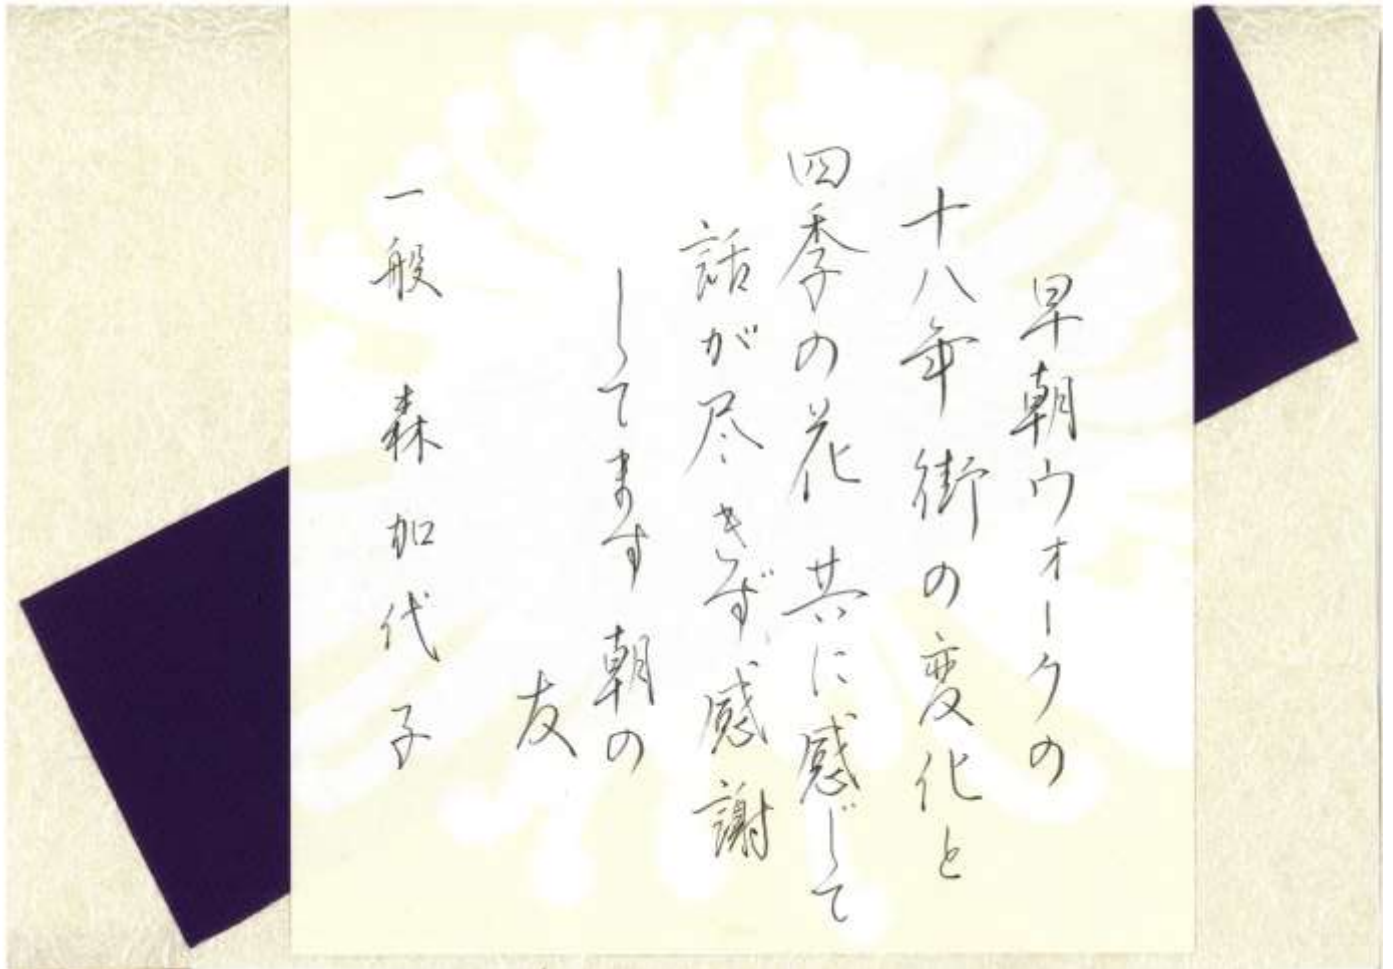 早朝ウォークの
十八年街の変化と
四季の花 共に感じて
話が尽きず感謝
してます 朝の
友
一般 森加代子